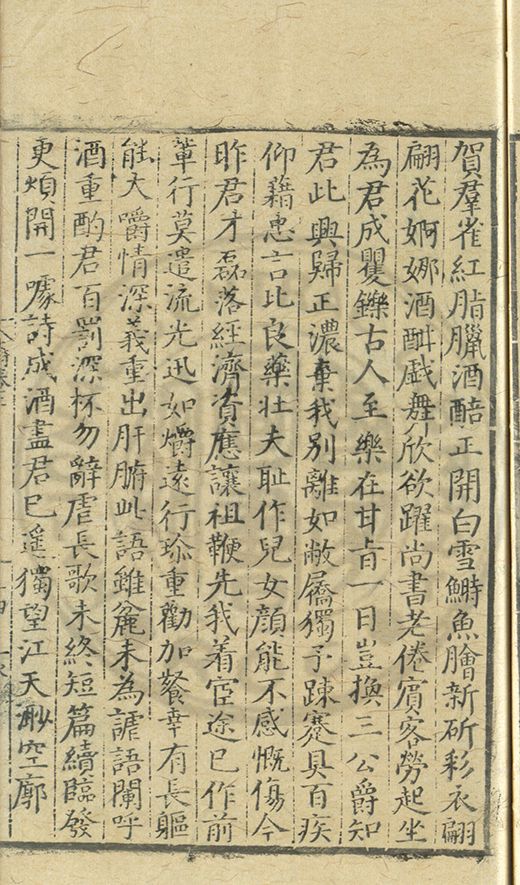 賀羣雀紅脂臘酒醅正開白雪鰣魚膾新斫彩衣翩
翩花婀娜酒酣戲舞欣欲躍尚書老倦賓客勞起坐
為君成矍鑠古人至樂在甘㫖一日豈換三公爵知
君此興歸正濃棄我別離如敝屩獨予踈蹇具百疾
仰藉惠言比良藥壯夫耻作兒女顔能不感慨傷今
昨君才磊落經濟資應讓祖鞭先我着宦途已作前
軰行莫遣流光迅如爝遠行珎重勸加餐幸有長軀
能大嚼情深義重出肝腑此語雖麄未為謔語闌呼
酒重酌君百罰深杯勿辭虐長歌未終短篇續臨發
更煩開一噱詩成酒盡君已遙獨望江天渺空廓